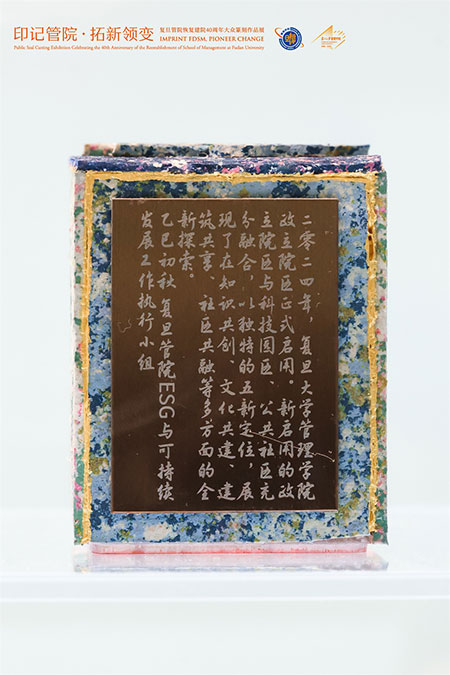 印记管院·拓新领变
复旦管院恢复建院40周年大众篆刻作品展
IMPRINT FDSM, PIONEER CHANGE
Public Seal Carving Exhibition Celebrating the 40th Anniversary of the Reestablishment of School of Management at Fudan University
二零二四年，复旦大学管理学院
政立院区正式启用。新启用的政
立院区与科技园区、公共社区充
分融合，以独特的五新定位，展
现了在知识共创、文化共建、建
筑共享、社区共融等多方面的全
新探索。
乙巳初秋 复旦管院ESG与可持续
发展工作执行小组